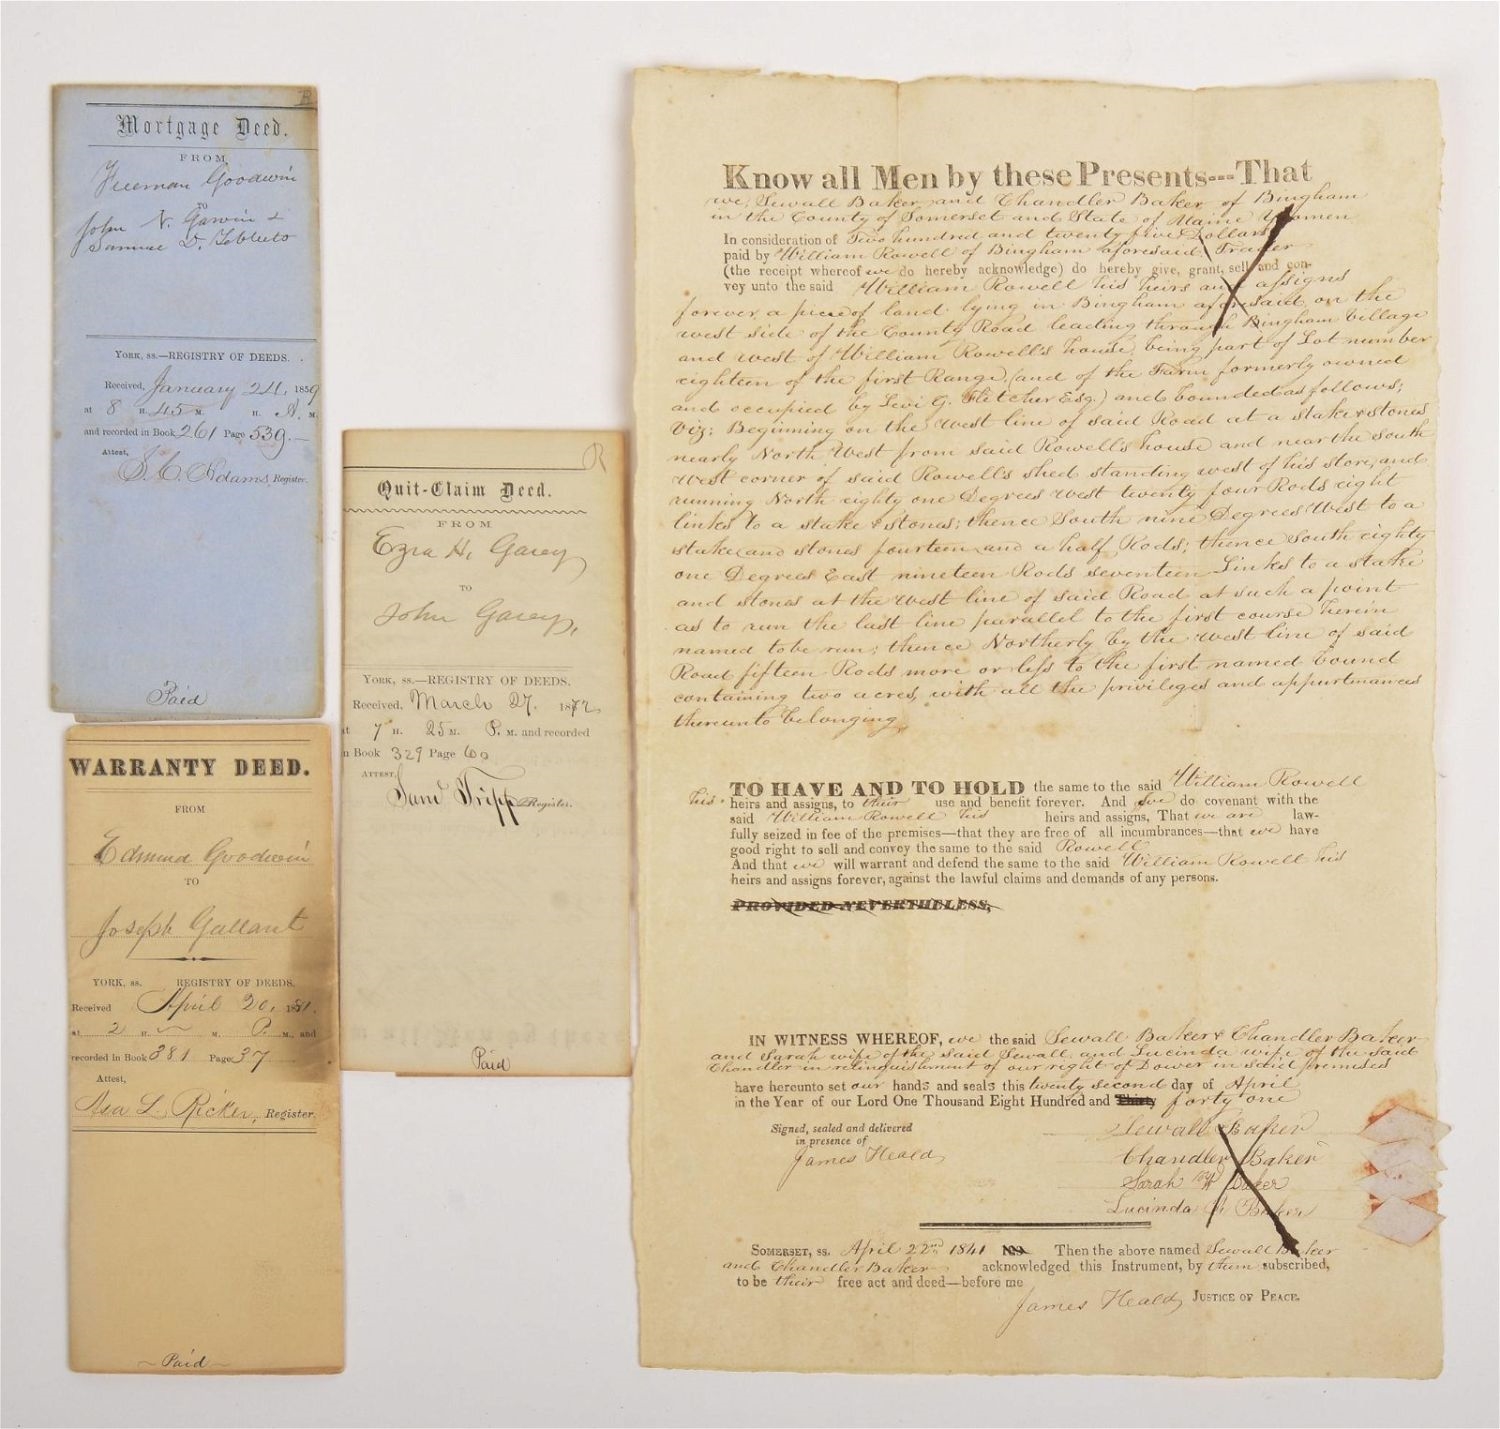 B
Mortgage Deed.
FROM
Freeman Goodwin
TO
John N. Goodwin &
Samuel D.
YORK, ss.—REGISTRY OF DEEDS.
Received, January 24, 1859
at 8 H. 45 M. H. A. M.
and recorded in Book 261 Page 539.—
Attest,
S. C. Adams, Register.
Paid
WARRANTY DEED.
FROM
Edmund Goodwin
TO
Joseph Gallant
YORK, ss. REGISTRY OF DEEDS.
Received April 20, 1881.
at 2 H. — M. P. M., and
recorded in Book 381 Page 37
Attest,
Asa L. Ricker, Register.
~ Paid ~
R
Quit-Claim Deed.
FROM
Ezra H. Garey
TO
John Garey,
YORK, ss.—REGISTRY OF DEEDS.
Received, March 27. 1872,
at 7 H. 25 M. P. M. and recorded
in Book 329 Page 60
ATTEST,
Tripp Register.
Paid
Know all Men by these Presents---That
we, Sewall Baker, and Chandler Baker of Bingham
in the County of Somerset and State of Maine Yeomen
In consideration of Two hundred and twenty five Dollars
paid by William Rowell of Bingham aforesaid, Trader
(the receipt whereof we do hereby acknowledge) do hereby give, grant, sell and con-
vey unto the said William Rowell his heirs and assigns
forever a piece of land lying in Bingham aforesaid on the
west side of the County Road leading through Bingham Village
and west of William Rowell's house, being part of Lot number
eighteen of the first Range, (and of the Farm formerly owned
and occupied by Levi G. Fletcher Esq.) and bounded as follows;
Viz: Beginning on the West line of said Road at a stake & stones
nearly North West from said Rowell's house and near the South
west corner of said Rowell's shed standing west of his store, and
running North eighty one Degrees west twenty four Rods eight
links to a stake & stones; thence South nine Degrees West to a
stake and stones fourteen and a half Rods; thence South eighty
one Degrees East nineteen Rods seventeen Links to a stake
and stones at the west line of said Road at such a point
as to run the last line parallel to the first course herein
named to be run; thence Northerly by the west line of said
Road fifteen Rods more or less to the first named bound
containing two acres, with all the privileges and appurtenances
thereunto belonging,
TO HAVE AND TO HOLD the same to the said William Rowell
his heirs and assigns, to their use and benefit forever. And we do covenant with the
said William Rowell his heirs and assigns, That we are law-
fully seized in fee of the premises—that they are free of all incumbrances—that we have
good right to sell and convey the same to the said Rowell
And that we will warrant and defend the same to the said William Rowell his
heirs and assigns forever, against the lawful claims and demands of any persons.
PROVIDED NEVERTHELESS,
IN WITNESS WHEREOF, we the said Sewall Baker & Chandler Baker
and Sarah wife of the said Sewall and Lucinda wife of the said
Chandler in relinquishment of our right of Dower in said premises
have hereunto set our hands and seals this twenty second day of April
in the Year of our Lord One Thousand Eight Hundred and Thirty forty one
Signed, sealed and delivered
in presence of
James Heald
Sewall Baker
Chandler Baker
Sarah W Baker
Lucinda Baker
SOMERSET, ss. April 22nd, 1841 Then the above named Sewall Baker
and Chandler Baker acknowledged this Instrument, by them subscribed,
to be their free act and deed—before me
James Heald JUSTICE OF PEACE.